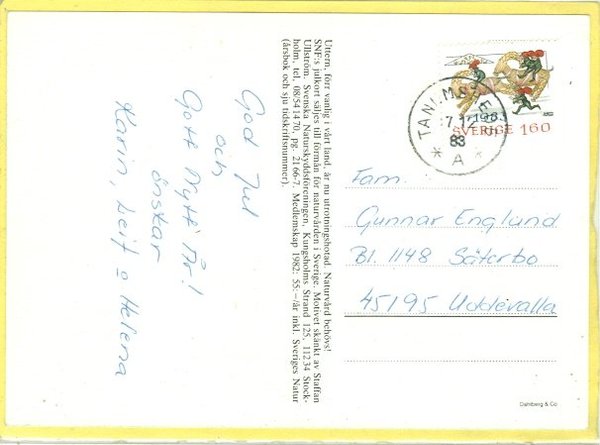 God Jul
och
Gott Nytt År!
önskar
Karin, Leif o Helena
Uttern, förr vanlig i vårt land, är nu utrotningshotad. Naturvård behövs!
SNF:s julkort säljes till förmån för naturvården i Sverige. Motivet skänkt av Staffan
Ullström. Svenska Naturskyddsföreningen, Kungsholms Strand 125, 112 34 Stock-
holm, tel. 08/54 14 70, pg. 21 66-7. Medlemskap 1982: 55:–/år inkl. Sveriges Natur
(årsbok och sju tidskriftsnummer).
SVERIGE 160
83
* A *
Fam.
Gunnar Englund
Bl. 1148 Säterbo
45195 Uddevalla
Dahlberg & Co